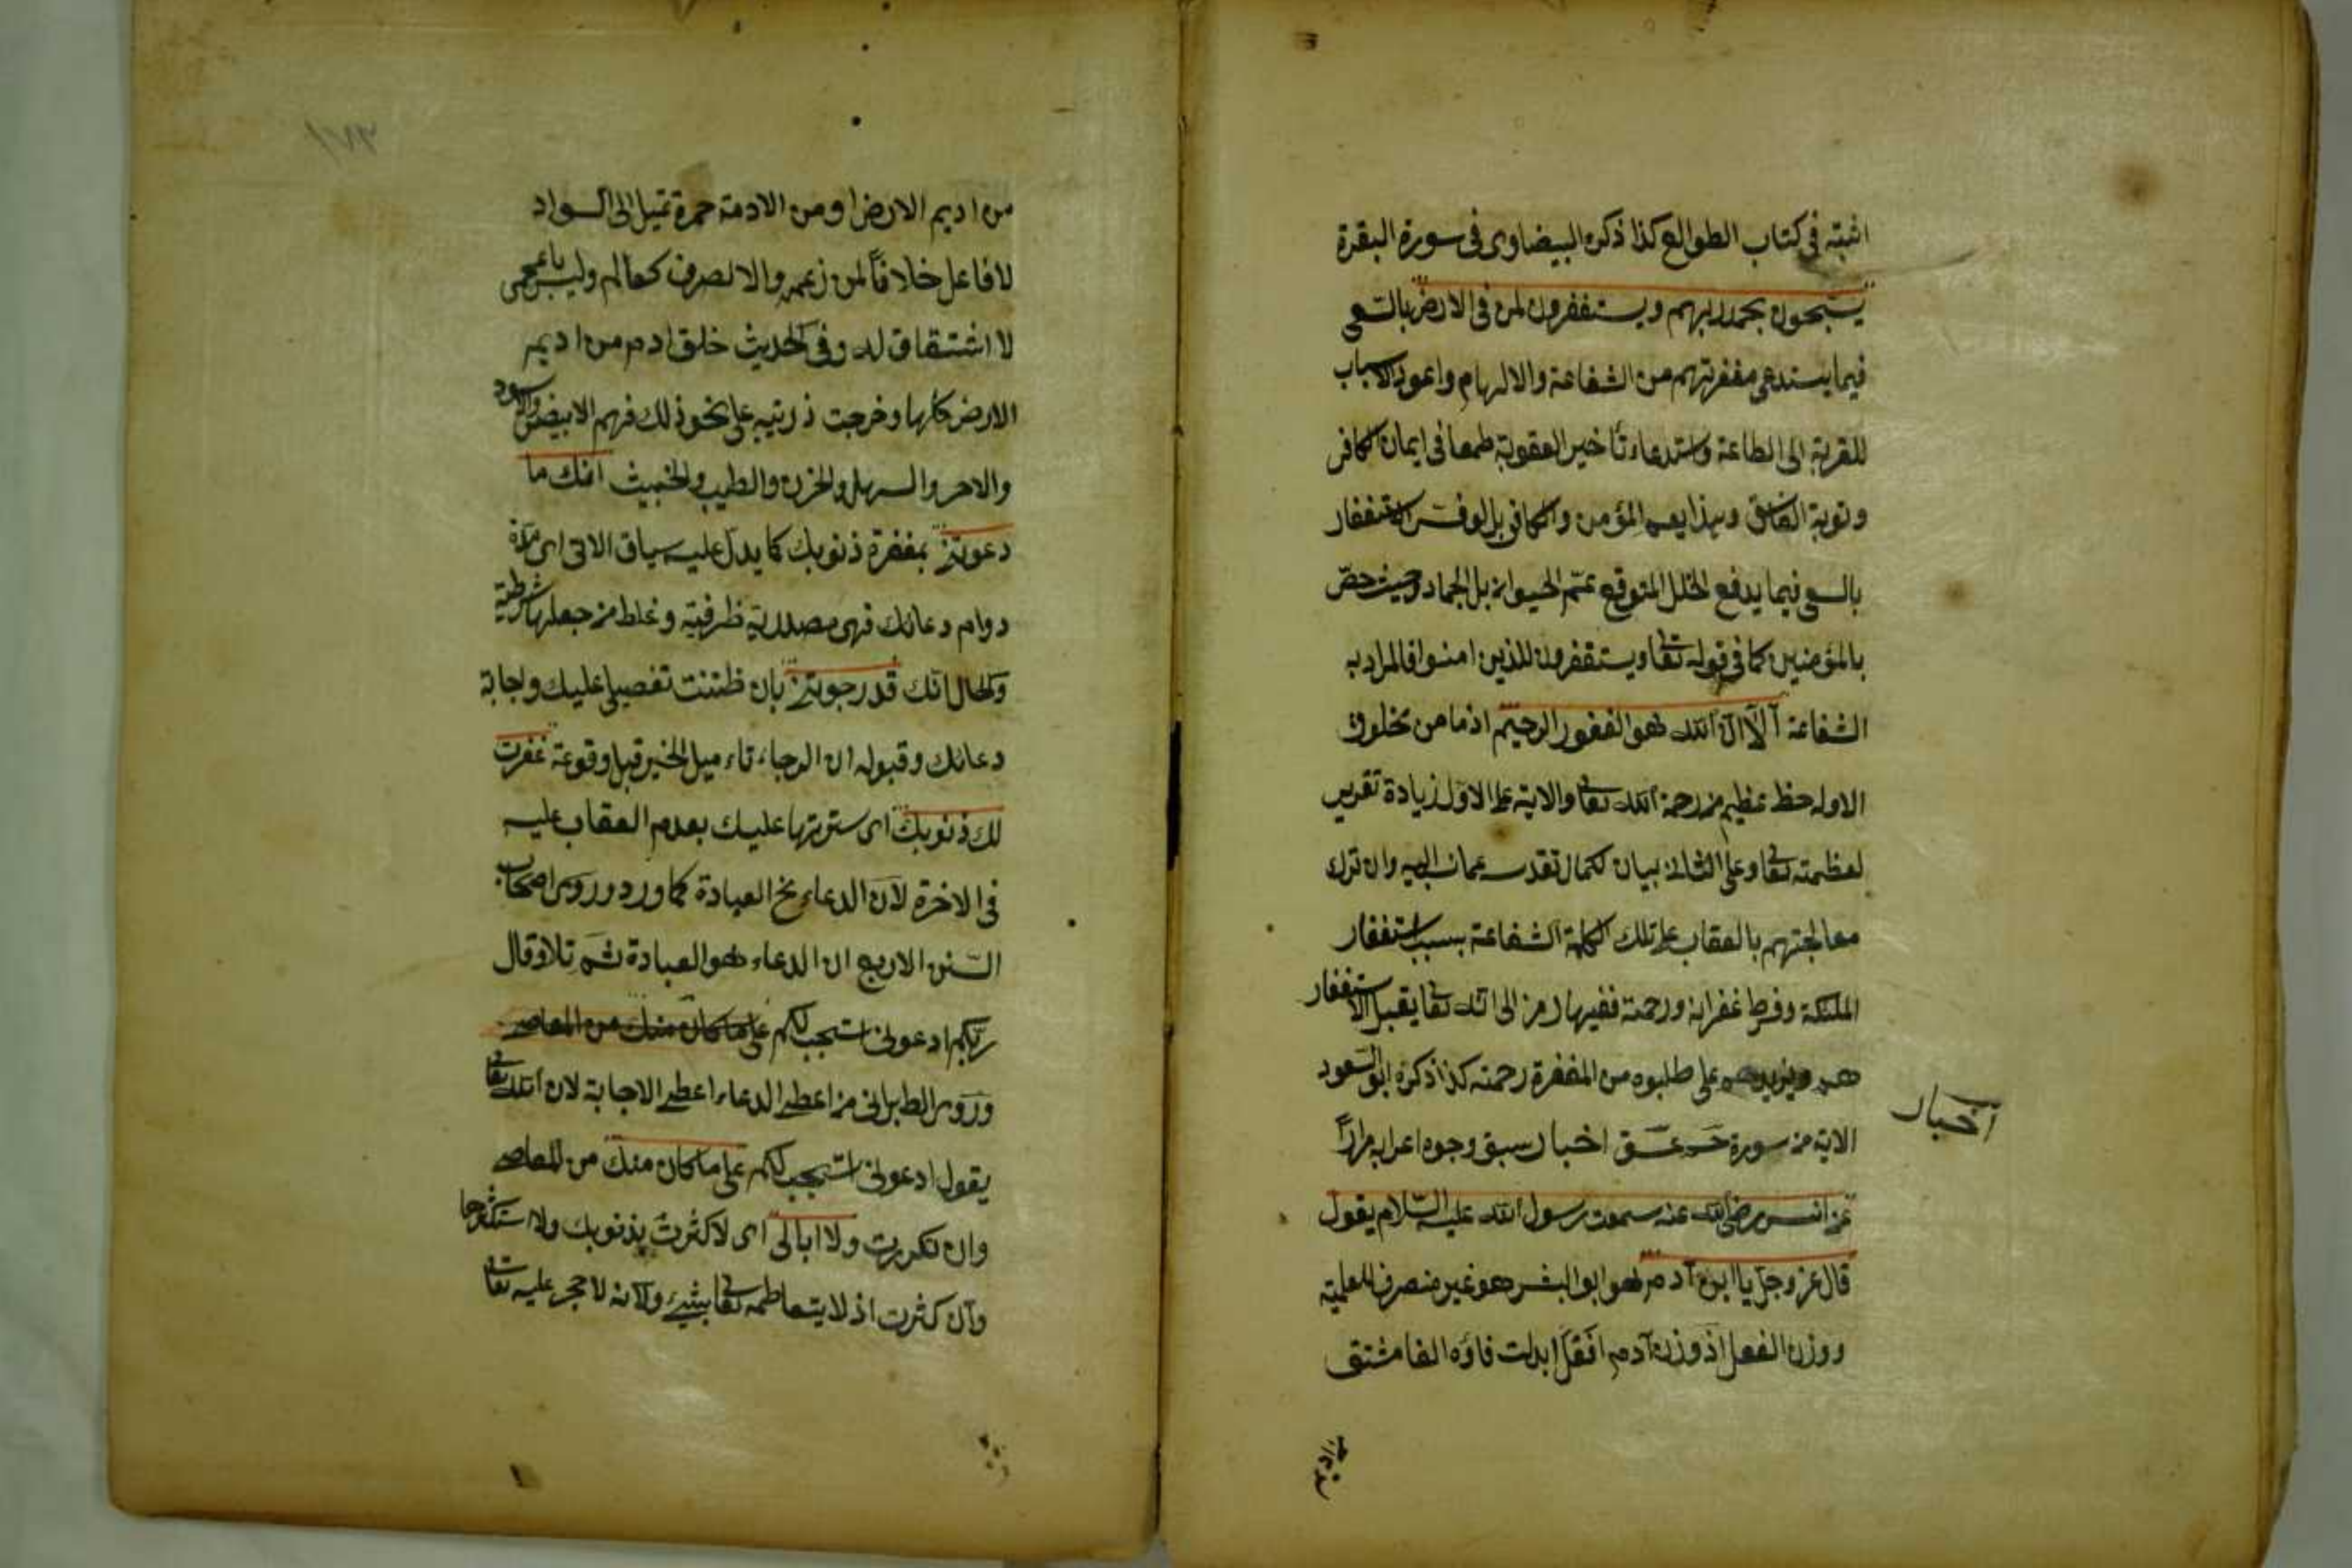 اثبته في كتاب الطوالع كذا ذكره البيضاوى في سورة البقرة
يسبحون بحمد ربهم ويستغفرون لمن في الارض بالسعى
فيما يستدعى مغفرتهم من الشفاعة والالهام واعداد الاسباب
للقربة الى الطاعة واستدعاء تأخير العقوبة طمعا في ايمان الكافر
وتوبة الفاسق وبهذا يعم المؤمن والكافر بل لو فسر الاستغفار
بالسعى فيما يدفع الخلل المتوقع عمّ الحيوان بل الجماد وحيث خصّ
بالمؤمنين كما في قوله تعا ويستغفرون للذين امنوا فالمراد به
الشفاعة الا ان الله هو الغفور الرحيم اذ ما من مخلوق
الا وله حظ عظيم من رحمة الله تعا والاية على الاول زيادة تقرير
لعظمته تعا وعلى الثانى بيان لكمال تقدسه عما نسب اليه وان ترك
معالجتهم بالعقاب على تلك الكلمة الشفاعة بسبب استغفار
الملئكة وفرط غفرانه ورحمته ففيها رمز الى انه تعا يقبل الاستغفار
هم ويزيدهم على طلبوه من المغفرة رحمته كذا ذكره ابو السعود
الاية من سورة حم عسق اخبار سبق وجوه اعرابه مرارًا
اخبار
عن انس رضى الله عنه سمعت رسول الله عليه السّلام يقول
قال عز وجل يا ابن آدم هو ابو البشر هو غير منصرف للعلمية
ووزن الفعل اذ وزن آدم افعل ابدلت فاؤه الفا مشتق
من اديم
من اديم الارض او من الادمة حمرة تميل الى السواد
لا فاعل خلافًا لمن زعمه والا لصرف كعالم وليس باعجمى
لا اشتقاق له وفي الحديث خلق ادم من اديم
الارض كلها وخرجت ذريته على نحو ذلك فهم الابيض والاسود
والاحمر والسهل والحزن والطيب والخبيث انك ما
دعوتنى بمغفرة ذنوبك كما يدل عليه سياق الاتى اى مدّة
دوام دعائك فهى مصدرية ظرفية وغلط من جعلها شرطية
والحال انك قد رجوتنى بان ظننت تفضيلى عليك واجابة
دعائك وقبوله ان الرجاء تاءميل الخير قبل وقوعه غفرت
لك ذنوبك اى سترتها عليك بعدم العقاب عليه
في الاخرة لان الدعاء مخ العبادة كما ورد وروى اصحاب
السّنن الاربع ان الدعاء هو العبادة ثم تلا وقال
ربكم ادعونى استجب لكم على ما كان منك من المعاصى
وروى الطبرانى من اعطى الدعاء اعطى الاجابة لان الله تعا
يقول ادعونى استجب لكم على ما كان منك من المعاصى
وان تكررت ولا ابالى اى لا كثرت بذنوبك ولا استكثرها
وان كثرت اذ لا يتعاظمه تعا شىء ولانه لا حجر عليه تعا